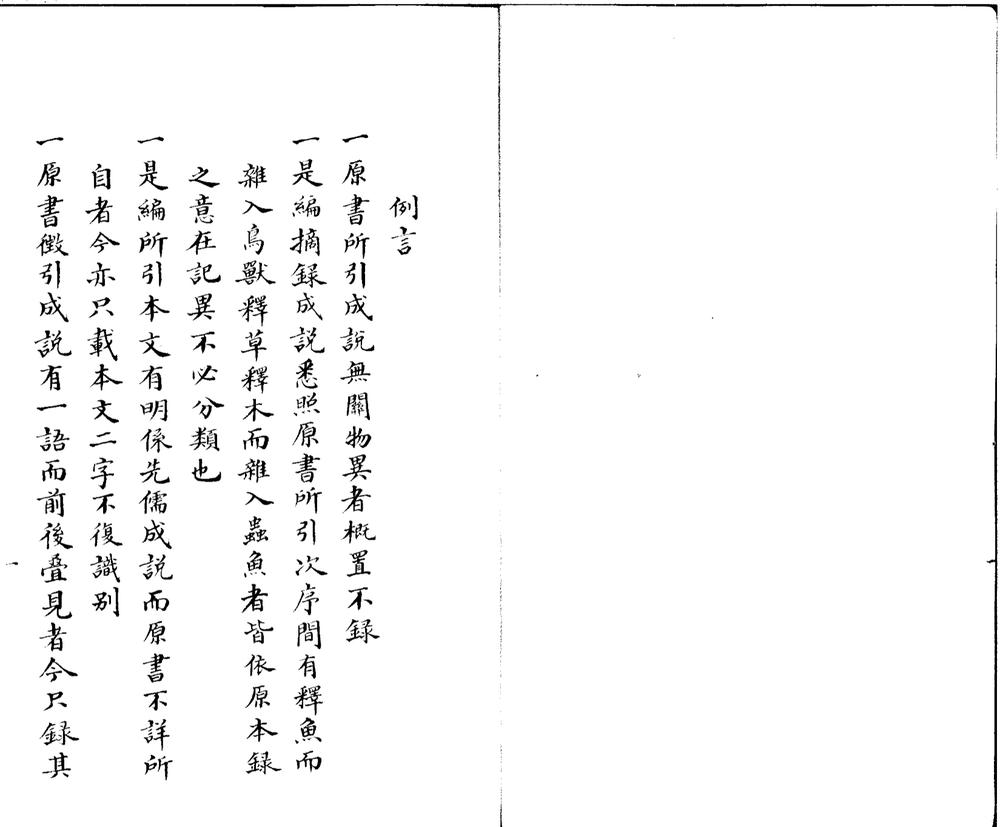 例言
一原書所引成說無關物異者概置不録
一是編摘録成説悉照原書所引次序間有釋魚而
雜入鳥獸釋草釋木而雜入蟲魚者皆依原本録
之意在記異不必分類也
一是編所引本文有明係先儒成説而原書不詳所
自者今亦只載本文二字不復識别
一原書徴引成説有一語而前後疊見者今只録其